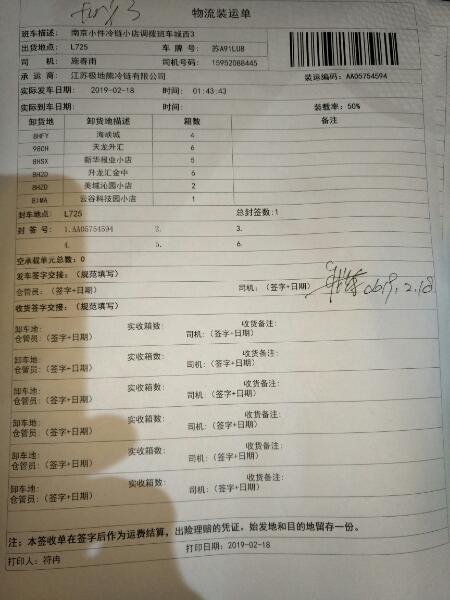 物流装运单
班车描述: 南京小件冷链小店调拨班车城西3
出货地点: L725 车牌号: 苏A91LU8
司机: 施春雨 司机号码: 15952088445
承运商: 江苏极地熊冷链有限公司 装运编码: AA05754594
实际发车日期: 2019-02-18 时间: 01:43:43
实际到车日期: 时间: 装载率: 50%
卸货地 卸货地描述 箱数 备注
8HFY 海峡城 4
980H 天龙升汇 6
8HSX 新华报业小店 5
8H2D 升龙汇金中 6
8HZD 美域沁园小店 2
8IMA 云谷科技园小店 1
封车地点: L725 总封签数:1
封签号: 1.AA05754594 2. 3.
4. 5. 6.
空承载单元总数: 0
发车签字交接: (规范填写)
仓管员: (签字+日期) 司机: (签字+日期) 2019.2.18
收货签字交接: (规范填写)
卸车地: 实收箱数: 收货备注:
仓管员: (签字+日期) 司机: (签字+日期)
卸车地: 实收箱数: 收货备注:
仓管员: (签字+日期) 司机: (签字+日期)
卸车地: 实收箱数: 收货备注:
仓管员: (签字+日期) 司机: (签字+日期)
卸车地: 实收箱数: 收货备注:
仓管员: (签字+日期) 司机: (签字+日期)
卸车地: 实收箱数: 收货备注:
仓管员: (签字+日期) 司机: (签字+日期)
卸车地: 实收箱数: 收货备注:
仓管员: (签字+日期) 司机: (签字+日期)
注: 本签收单在签字后作为运费结算, 出险理赔的凭证, 始发地和目的地留存一份。
打印人: 符冉 打印日期: 2019-02-18